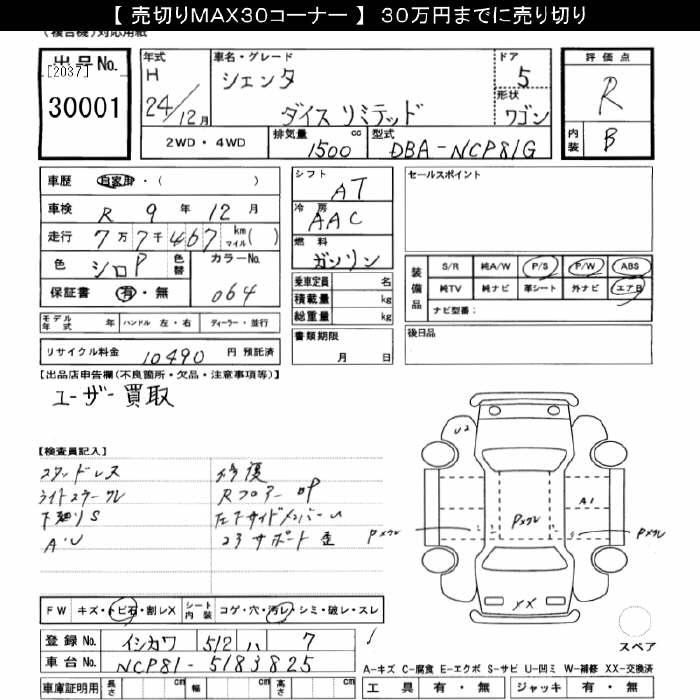 【 売切りMAX30コーナー 】 30万円までに売り切り
(複合機)対応用紙
出品No.
[2037]
30001
年式 H 24/12月
車名・グレード シエンタ
ダイス リミテッド
ドア 5
形状 ワゴン
2WD・4WD
排気量 1500 cc
型式 DBA-NCP81G
評価点 R
内装 B
車歴 自家用・( )
車検 R 9年 12月
走行 7万7千467 km マイル( )
色 シロP 色替
カラーNo. 064
保証書 有・無
モデル年式 年 ハンドル 左・右 ディーラー・並行
リサイクル料金 10490 円 預託済
シフト AT
冷房 AAC
燃料 ガソリン
乗車定員 名
積載量 kg
総重量 kg
書類期限 月 日
セールスポイント
装備品
S/R 純A/W P/S P/W ABS
純TV 純ナビ 革シート 外ナビ エアB
ナビ型番:
後日品
【出品店申告欄(不良箇所・欠品・注意事項等)】
ユーザー買取
【検査員記入】
スタッドレス
下廻りS
A・U
修復
U2
A1
FW キズ・トビ石・割レX
シート内装 コゲ・穴・汚レ・シミ・破レ・スレ
登録No. イシカワ 512 ハ 7
車台No. NCP81-5183825
車庫証明用 長さ cm 幅 cm 高さ cm
スペア
A-キズ C-腐食 E-エクボ S-サビ U-凹ミ W-補修 XX-交換済
工具 有・無 ジャッキ 有・無